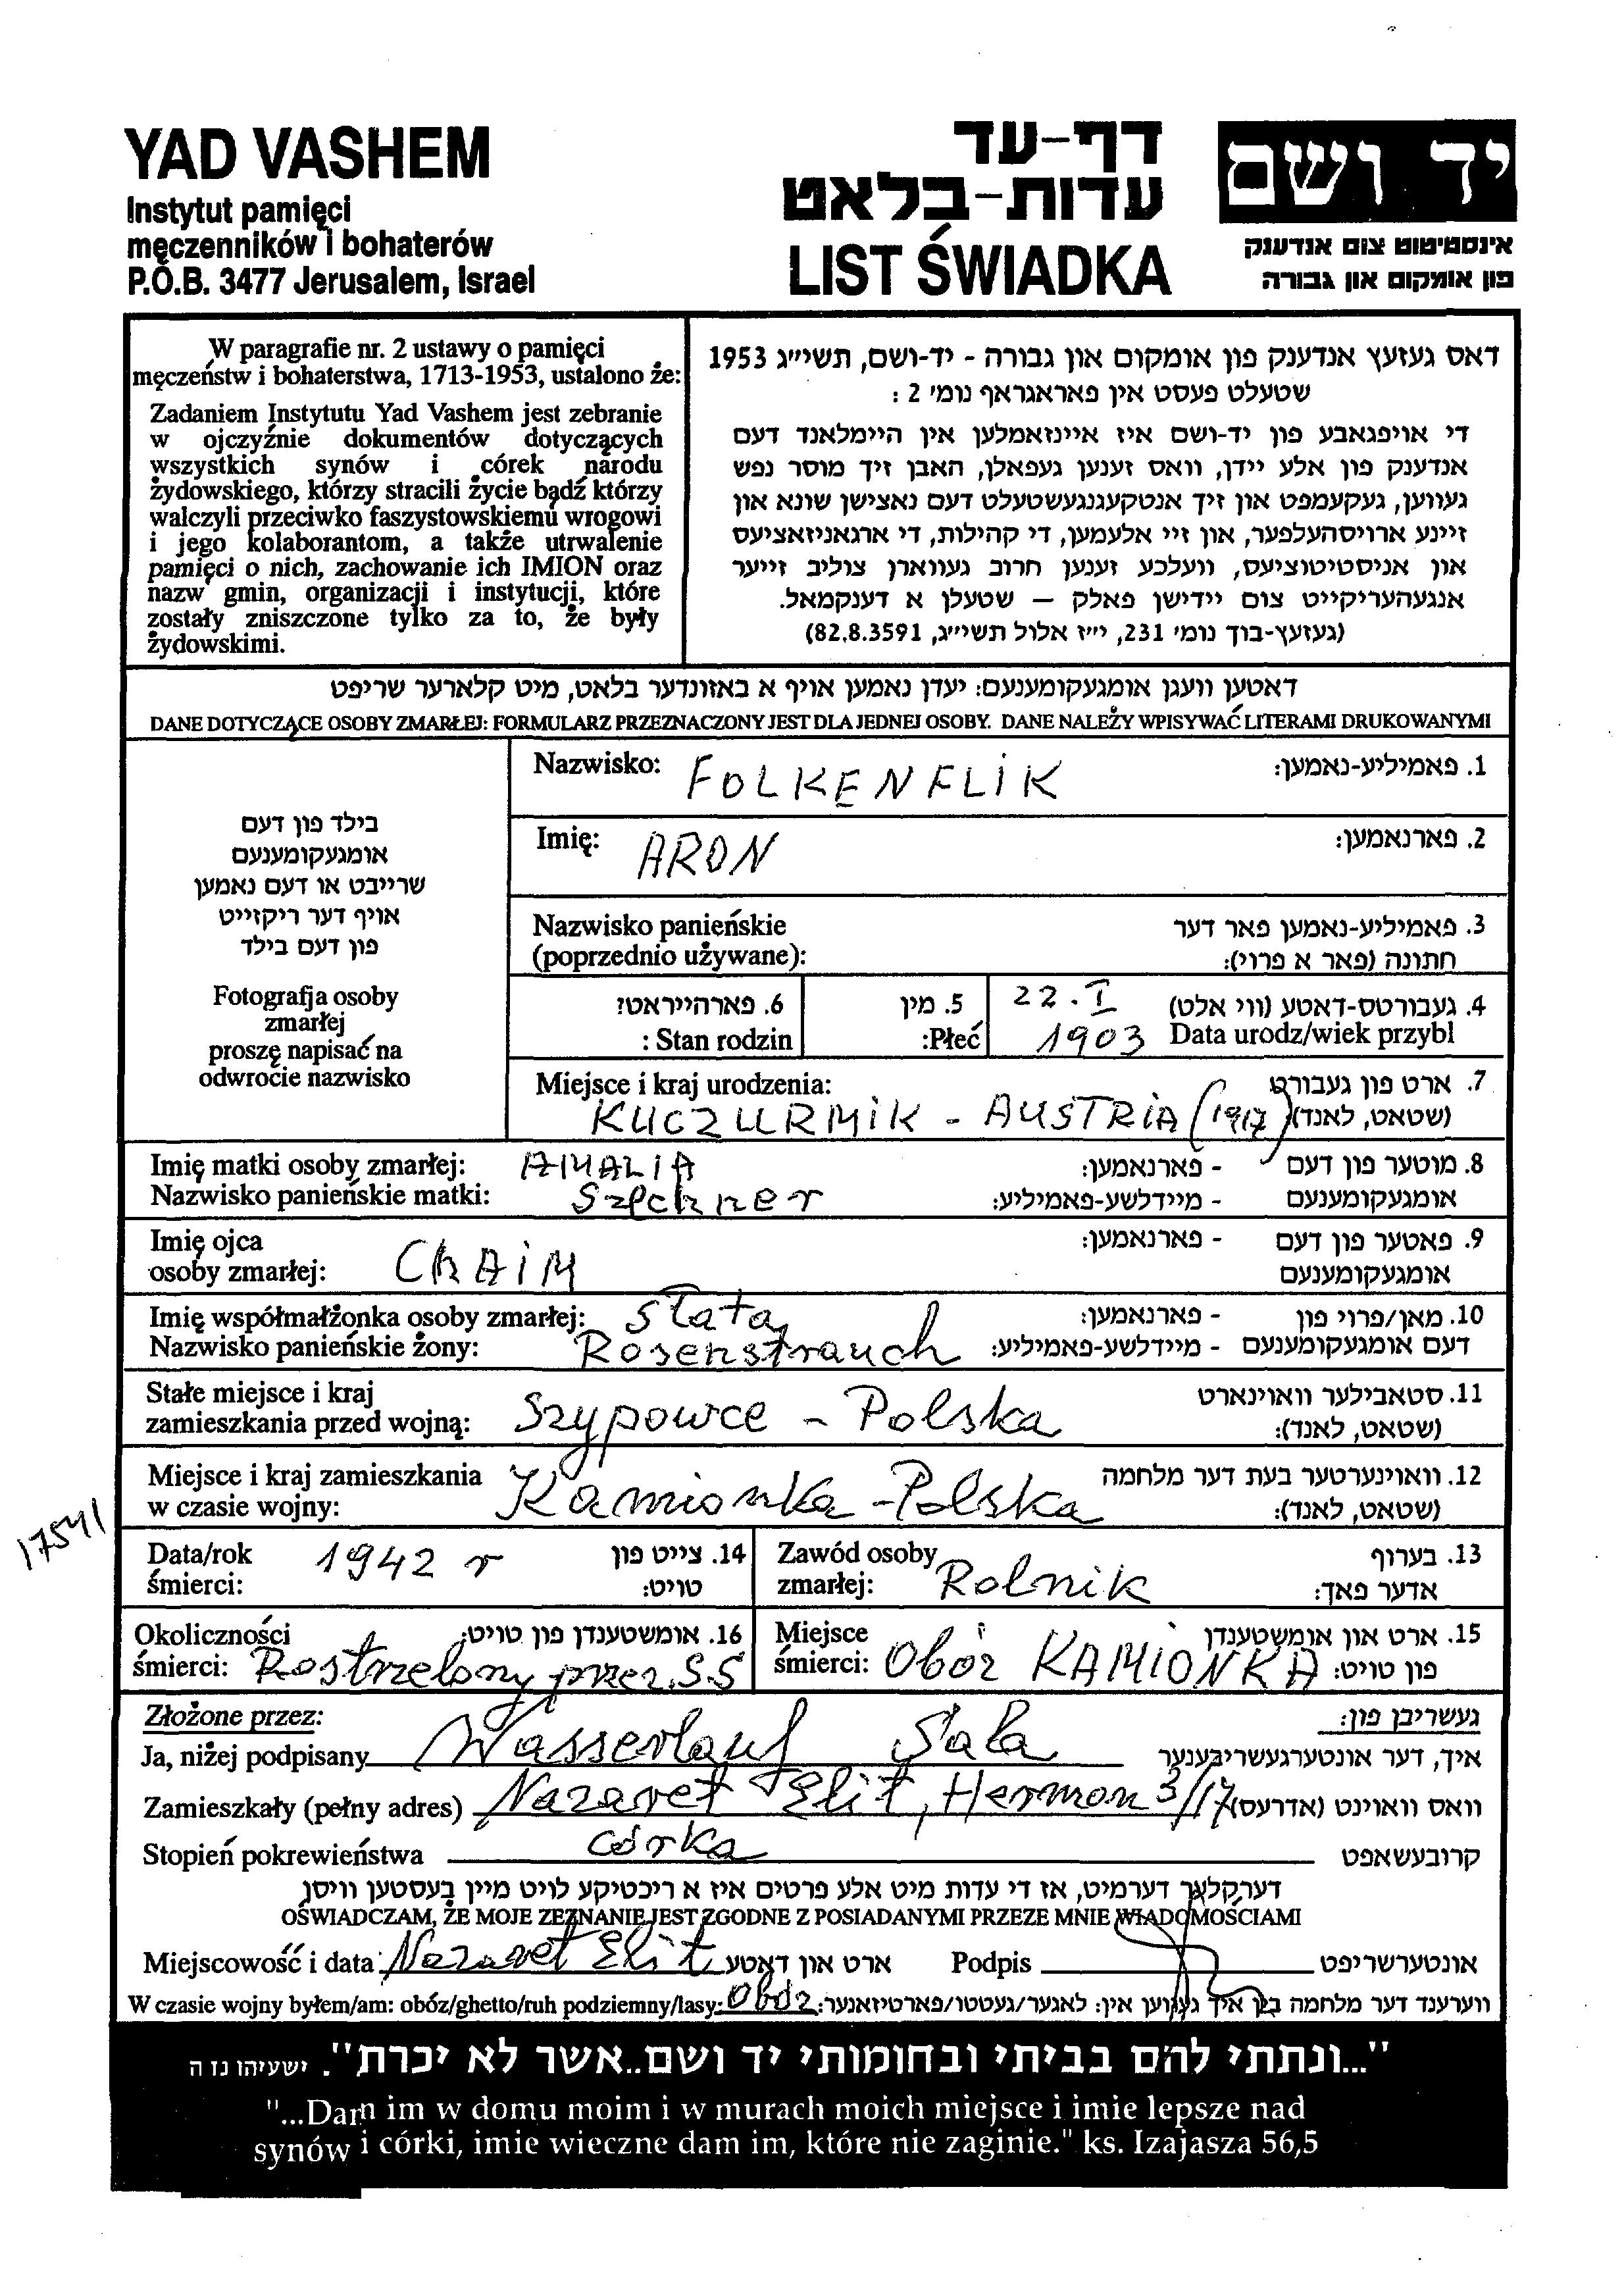 YAD VASHEM
Instytut pamięci
męczenników i bohaterów
P.O.B. 3477 Jerusalem, Israel
דף-עד
עדות-בלאט
LIST ŚWIADKA
יד ושם
אינסטיטוט צום אנדענק
פון אומקום און גבורה
W paragrafie nr. 2 ustawy o pamięci
męczeństw i bohaterstwa, 1713-1953, ustalono że:
Zadaniem Instytutu Yad Vashem jest zebranie
w ojczyźnie dokumentów dotyczących
wszystkich synów i córek narodu
żydowskiego, którzy stracili życie bądź którzy
walczyli przeciwko faszystowskiemu wrogowi
i jego kolaborantom, a także utrwalenie
pamięci o nich, zachowanie ich IMION oraz
nazw gmin, organizacji i instytucji, które
zostały zniszczone tylko za to, że były
żydowskimi.
דאס געזעץ אנדענק פון אומקום און גבורה - יד-ושם, תשי״ג 1953
שטעלט פעסט אין פאראגראף נומ׳ 2 :
די אויפגאבע פון יד-ושם איז איינזאמלען אין היימלאנד דעם
אנדענק פון אלע יידן, וואס זענען געפאלן, האבן זיך מוסר נפש
געווען, געקעמפט און זיך אנטקעגנגעשטעלט דעם נאצישן שונא און
זיינע ארויסהעלפער, און זיי אלעמען, די קהילות, די ארגאניזאציעס
און אניסטיטוציעס, וועלכע זענען חרוב געווארן צוליב זייער
אנגעהעריקייט צום יידישן פאלק – שטעלן א דענקמאל.
(געזעץ-בוך נומ׳ 231, י״ז אלול תשי״ג, 82.8.3591)
דאטען וועגן אומגעקומענעם: יעדן נאמען אויף א באזונדער בלאט, מיט קלארער שריפט
DANE DOTYCZĄCE OSOBY ZMARŁEJ: FORMULARZ PRZEZNACZONY JEST DLA JEDNEJ OSOBY. DANE NALEŻY WPISYWAĆ LITERAMI DRUKOWANYMI
בילד פון דעם
אומגעקומענעם
שרייבט או דעם נאמען
אויף דער ריקזייט
פון דעם בילד
Fotografja osoby
zmarłej
proszę napisać na
odwrocie nazwisko
Nazwisko: FOLKENFLIK 1. פאמיליע-נאמען:
Imię: ARON 2. פארנאמען:
Nazwisko panieńskie 3. פאמיליע-נאמען פאר דער
(poprzednio używane): חתונה (פאר א פרוי):
6. פארהייראט? 5. מין 22.I 4. געבורטס-דאטע (ווי אלט)
Stan rodzin : Płeć: 1903 Data urodz/wiek przybl
Miejsce i kraj urodzenia: 7. ארט פון געבורט
KUCZURMIK - AUSTRIA (1917) (שטאט, לאנד)
Imię matki osoby zmarłej: AMALIA - פארנאמען: 8. מוטער פון דעם
Nazwisko panieńskie matki: Szechner - מיידלשע-פאמיליע: אומגעקומענעם
Imię ojca - פארנאמען: 9. פאטער פון דעם
osoby zmarłej: CHAIM אומגעקומענעם
Imię współmałżonka osoby zmarłej: Słata - פארנאמען: 10. מאן/פרוי פון
Nazwisko panieńskie żony: Rosenstrauch - מיידלשע-פאמיליע: דעם אומגעקומענעם
Stałe miejsce i kraj 11. סטאבילער וואוינארט
zamieszkania przed wojną: Szypowce - Polska (שטאט, לאנד):
Miejsce i kraj zamieszkania 12. וואוינערטער בעת דער מלחמה
w czasie wojny: Kamionka - Polska (שטאט, לאנד):
17541
Data/rok 1942 r 14. צייט פון Zawód osoby 13. בערוף
śmierci: טויט: zmarłej: Rolnik אדער פאך:
Okoliczności 16. אומשטענדן פון טויט: Miejsce 15. ארט און אומשטענדן
śmierci: Rostrzelony przez S.S śmierci: Obóz KAMIONKA פון טויט:
Złożone przez: געשריבן פון:
Ja, niżej podpisany Wasserlauf Sala איך, דער אונטערגעשריבענער
Zamieszkały (pełny adres) Nazaret Elit, Hermon 3/17 וואס וואוינט (אדרעס)
Stopień pokrewieństwa córka קרובעשאפט
דערקלער דערמיט, אז די עדות מיט אלע פרטים איז א ריכטיקע לויט מיין בעסטען וויסן
OŚWIADCZAM, ŻE MOJE ZEZNANIE JEST ZGODNE Z POSIADANYMI PRZEZE MNIE WIADOMOŚCIAMI
Miejscowość i data: Nazaret Elit ארט און דאטע Podpis אונטערשריפט
W czasie wojny byłem/am: obóz/ghetto/ruh podziemny/lasy: Obóz ווערענד דער מלחמה בין איך געווען אין: לאגער/געטטו/פארטיזאנער:
"...ונתתי להם בביתי ובחומותי יד ושם..אשר לא יכרת". ישעיהו נז ה
"...Dam im w domu moim i w murach moich miejsce i imie lepsze nad
synów i córki, imie wieczne dam im, które nie zaginie." ks. Izajasza 56,5